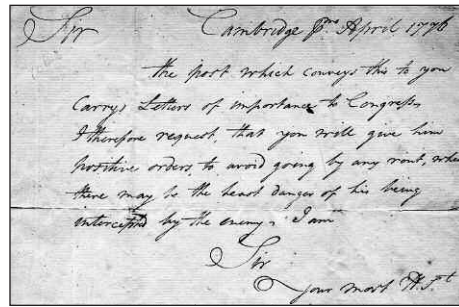 Sir Cambridge pmo April 1776
the post which conveys this to you
Carrys Letters of importance to Congress
I therefore request, that you will give him
positive orders, to avoid going by any rout, where
there may be the least danger of his being
intercepted by the enemy. I am
Sir
Your most H. St